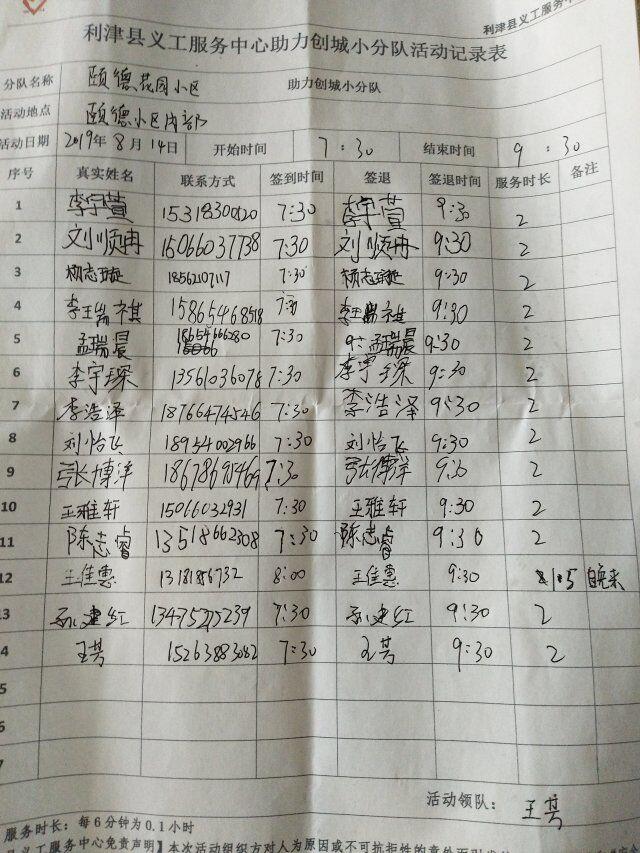 利津县义工服务中
利津县义工服务中心助力创城小分队活动记录表
分队名称 颐德花园小区 助力创城小分队
活动地点 颐德小区内部
活动日期 2019年8月14日 开始时间 7:30 结束时间 9:30
序号 真实姓名 联系方式 签到时间 签退 签退时间 服务时长 备注
1 李宇萱 15318300120 7:30 李宇萱 9:30 2
2 刘顺冉 15066037738 7:30 刘顺冉 9:30 2
3 杨志璇 18562107117 7:30 杨志璇 9:30 2
4 李王嵛祺 15865468518 7:30 9:30 2
5 孟瑞晨 18654666280 7:30 孟瑞晨 9:30 2
6 李宇琛 13561036078 7:30 李宇琛 9:30 2
7 李浩泽 18766474546 7:30 李浩泽 9:30 2
8 刘怡飞 18954002966 7:30 刘怡飞 9:30 2
9 张博洋 18678690469 7:30 张博洋 9:30 2
10 王雅轩 15066032931 7:30 王雅轩 9:30 2
11 陈志睿 13518662808 7:30 陈志睿 9:30 2
12 王佳惠 13181856732 8:00 王佳惠 9:30 1.5 自晚来
13 孙建红 13475275239 7:30 孙建红 9:30 2
4 王芸 15263883082 7:30 王芸 9:30 2
5
6
7
活动领队: 王芸
服务时长: 每6分钟为0.1小时
县义工服务中心免责声明】本次活动组织方对人为原因或不可抗拒性的意外而引发